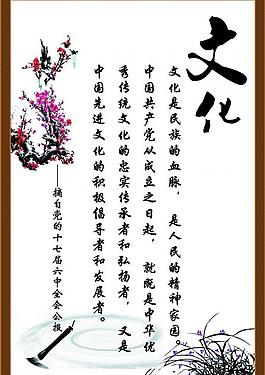 文化
文化是民族的血脉，是人民的精神家园。
中国共产党从成立之日起，就既是中华优
秀传统文化的忠实传承者和弘扬者，又是
中国先进文化的积极倡导者和发展者。
——摘自党的十七届六中全会公报